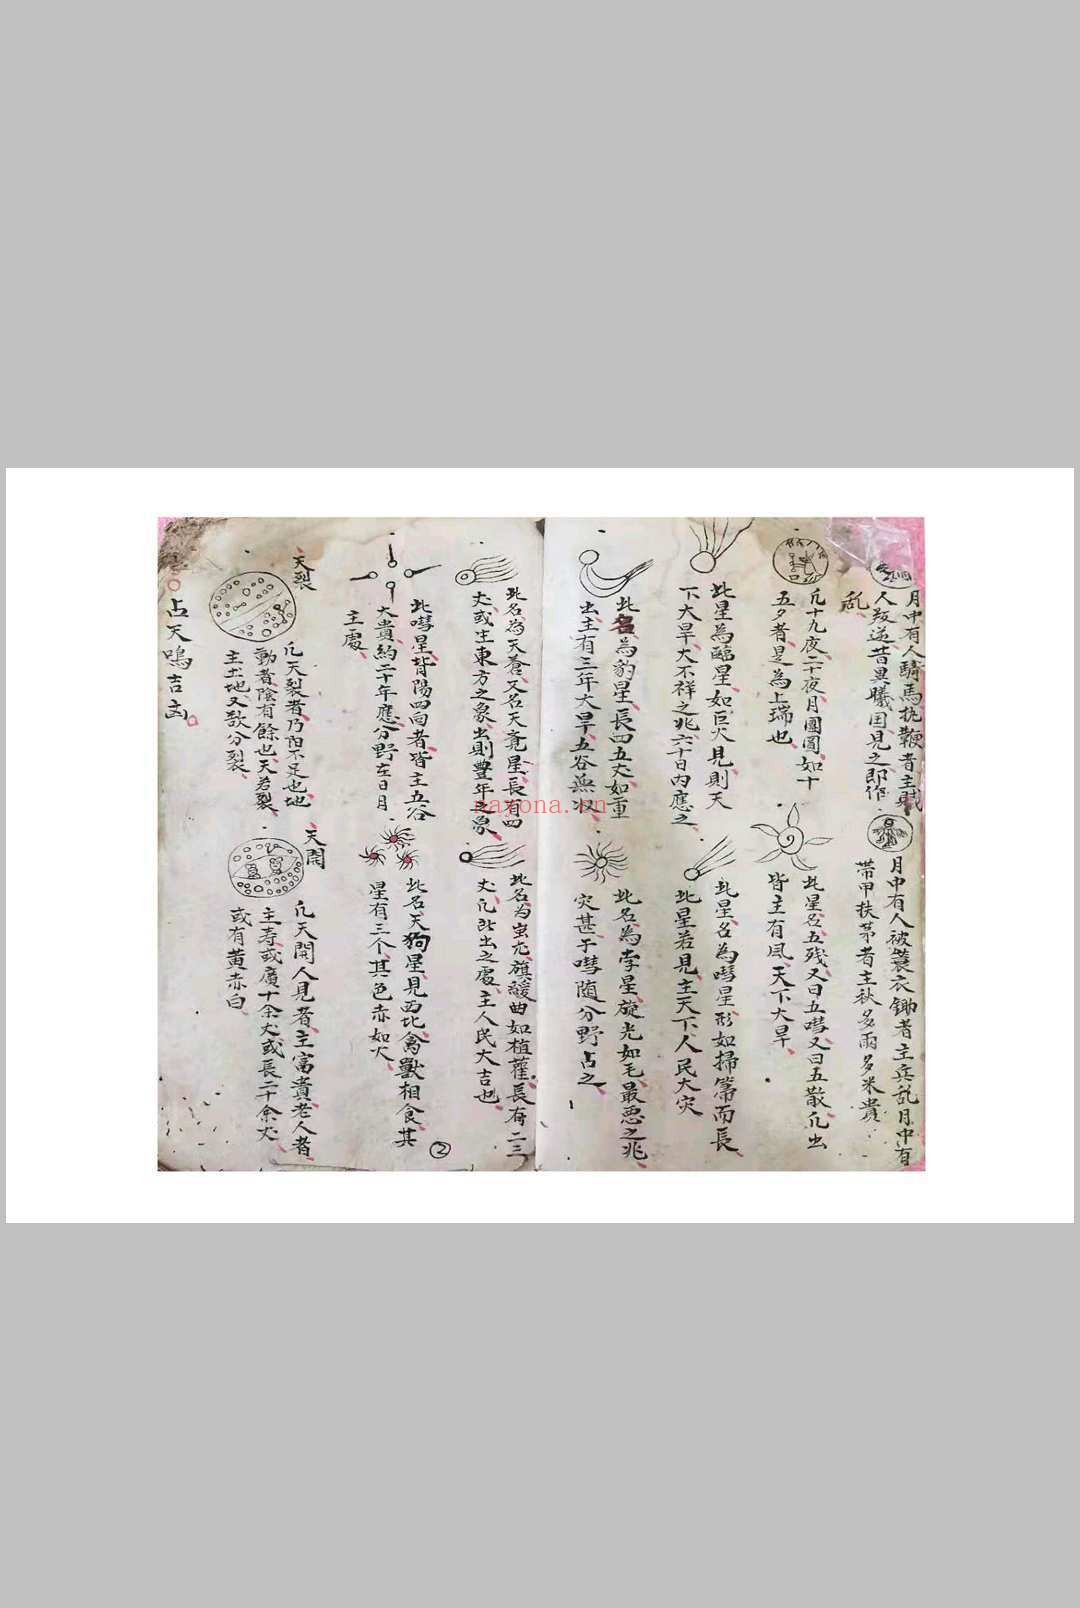 月中有人騎馬执鞭者主賊
人叛逆昔異曦国見之即作
乱
月中有人被蓑衣鋤者主兵乱月中有
帶甲扶茅者主秋多雨多米貴
凡十九夜二十夜月團圓如十
五夕者是為上瑞也
此星名五残又曰五彗又曰五散凡出
皆主有风天下大旱
此星為臨星如巨火見則天
下大旱大不祥之兆六十日内應之
此星名為彗星形如掃箒而長
此星若見主天下人民大灾
此名為豹星長四五丈如重
出主有三年大旱五谷無收
此名為孛星旋光如毛最恶之兆
灾甚于彗随分野占之
此名為天蒼又名天竟星長有四
丈或生東方之象出則豊年之象
此名为蚩尤旗緩曲如植藿長有二三
丈凡此出之處主人民大吉也
此彗星背陽四向者皆主五谷
大貴約二十年應分野在日月
主處
此名天狗星見西北禽獸相食其
星有三个其色赤如火
②
天裂
凡天裂者乃阳不足也地
動者陰有餘也天若裂
主土地又欤分裂
天開
凡天開人見者主富貴老人者
主寿或廣十余丈或長二十余丈
或有黄赤白
占天鳴吉凶
naxona.cn